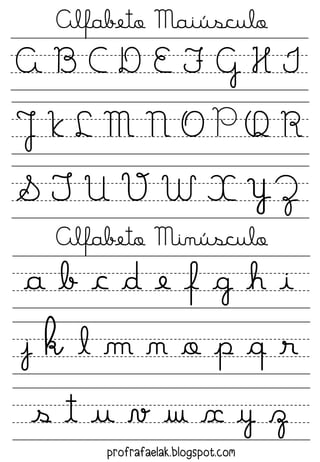 Alfabeto Maiúsculo
A B C D E F G H I
J K L M N O P Q R
S T U V W X Y Z
Alfabeto Minúsculo
a b c d e f g h i
j k l m n o p q r
s t u v w x y z
profrafaelak.blogspot.com